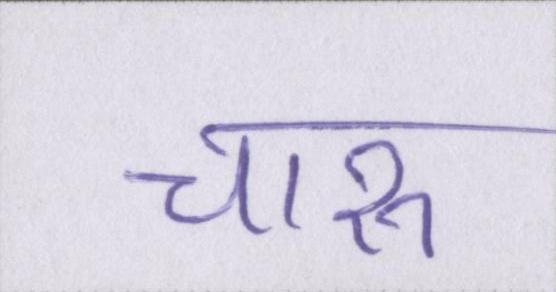 चारू